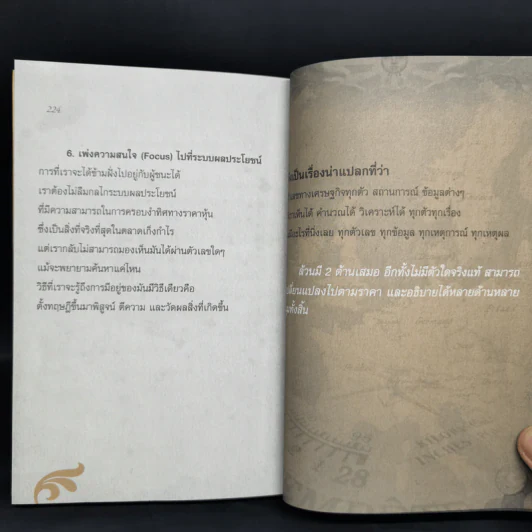 224
6. เพ่งความสนใจ (Focus) ไปที่ระบบผลประโยชน์
การที่เราจะได้ข้ามฝั่งไปอยู่กับผู้ชนะได้
เราต้องไม่ลืมกลไกระบบผลประโยชน์
ที่มีความสามารถในการครอบงำทิศทางราคาหุ้น
ซึ่งเป็นสิ่งที่จริงที่สุดในตลาดเก็งกำไร
แต่เรากลับไม่สามารถมองเห็นมันได้ผ่านตัวเลขใดๆ
แม้จะพยายามค้นหาแค่ไหน
วิธีที่เราจะรู้ถึงการมีอยู่ของมันมีวิธีเดียวคือ
ตั้งทฤษฎีขึ้นมาพิสูจน์ ตีความ และวัดผลสิ่งที่เกิดขึ้น
เป็นเรื่องน่าแปลกที่ว่า
เลขทางเศรษฐกิจทุกตัว สถานการณ์ ข้อมูลต่างๆ
เห็นได้ คำนวณได้ วิเคราะห์ได้ ทุกตัวทุกเรื่อง
อะไรที่นิ่งเลย ทุกตัวเลข ทุกข้อมูล ทุกเหตุการณ์ ทุกเหตุผล
ล้วนมี 2 ด้านเสมอ อีกทั้งไม่มีตัวใดจริงแท้ สามารถ
เปลี่ยนแปลงไปตามราคา และอธิบายได้หลายด้านหลาย
ทั้งสิ้น
28